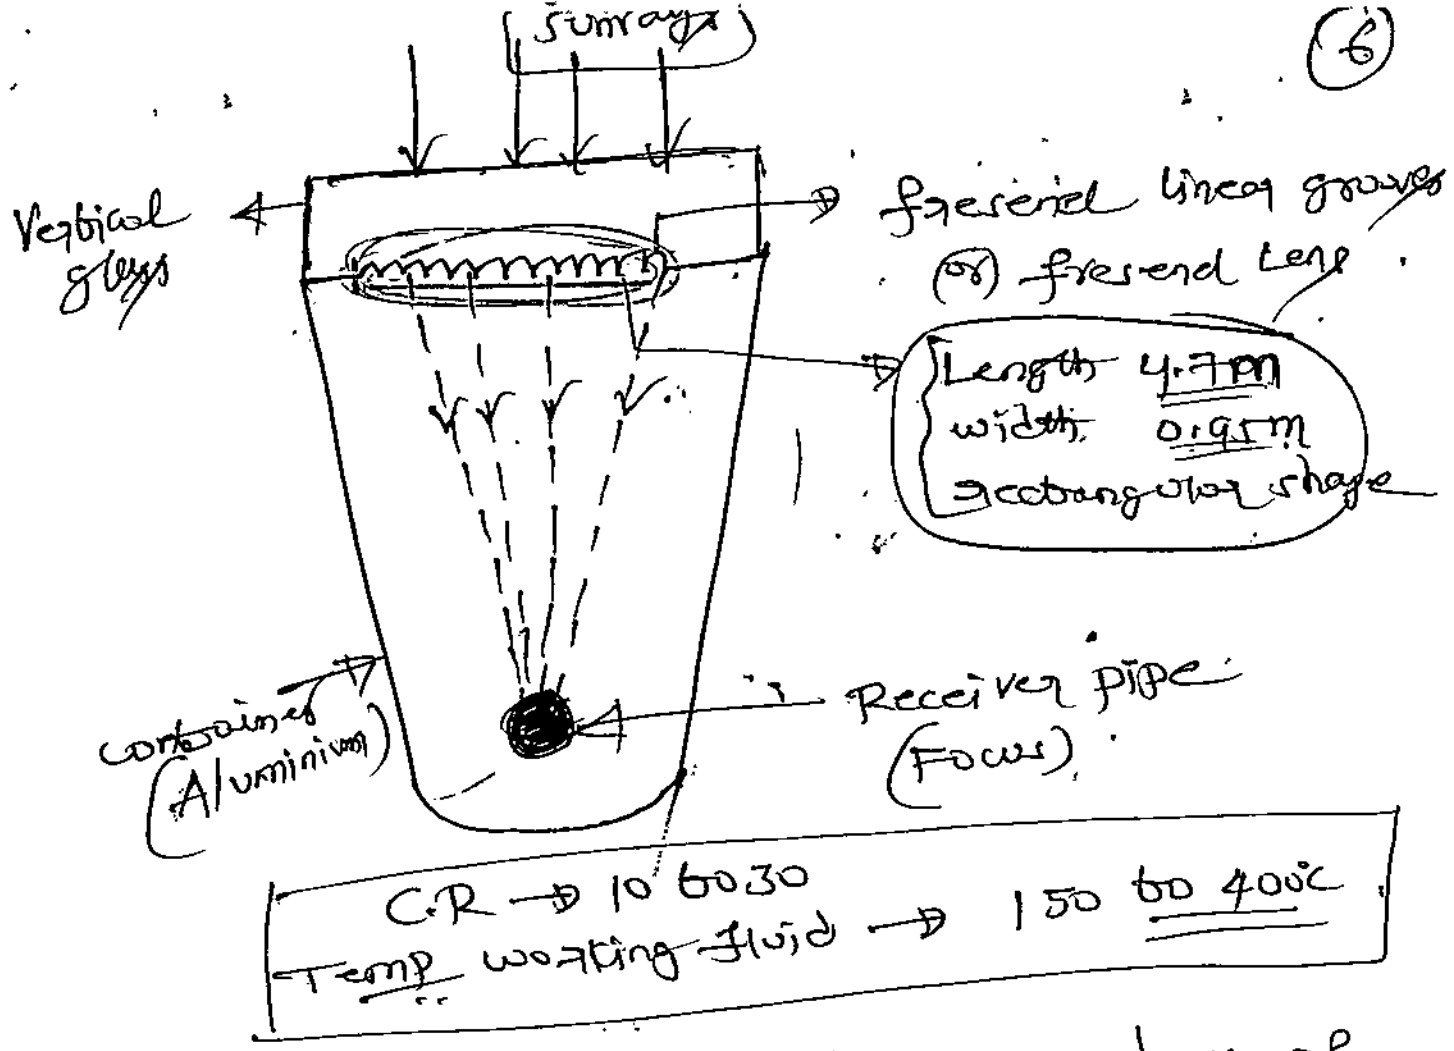 sunrays
6
Vertical
glass
fresenel linear grooves
(or) fresend Lens
Length 4.7m
width 0.95m
rectangular shape
Receiver pipe
(Focus).
container
(Aluminium)
C.R → 10 to 30
Temp working fluid → 150 to 400°C